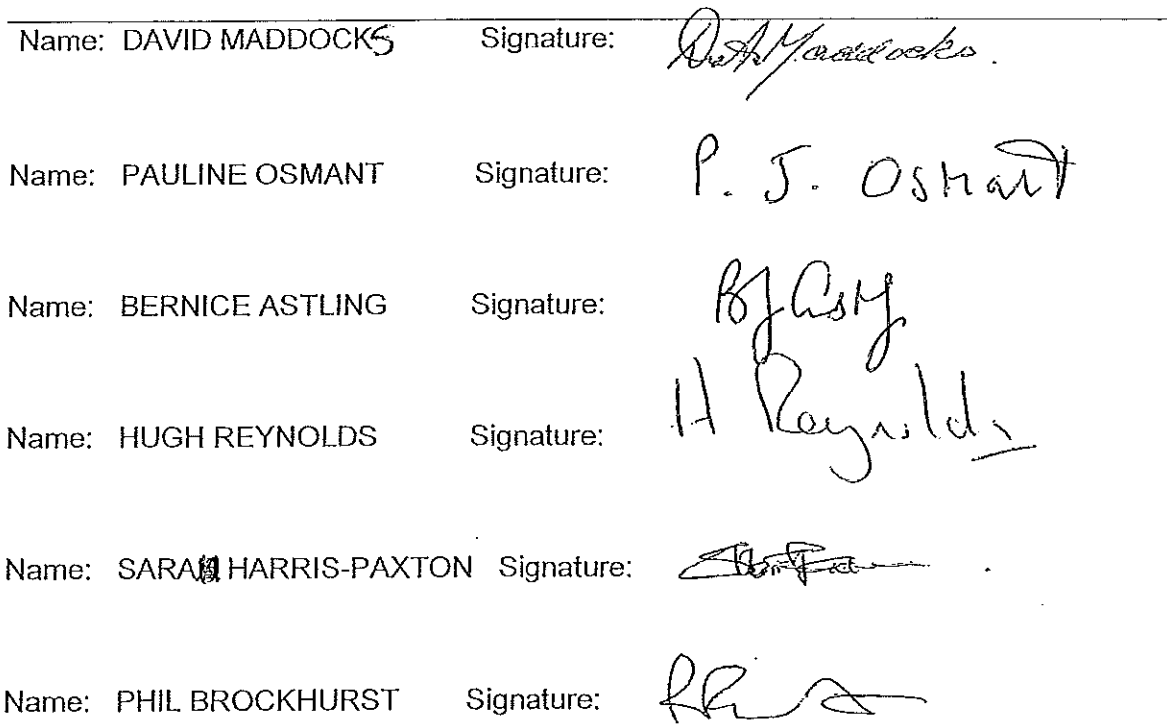 Name: DAVID MADDOCKS Signature: D.A. Maddocks.
Name: PAULINE OSMANT Signature: P. J. Osmant
Name: BERNICE ASTLING Signature:
Name: HUGH REYNOLDS Signature: H Reynolds
Name: SARA HARRIS-PAXTON Signature:
Name: PHIL BROCKHURST Signature: